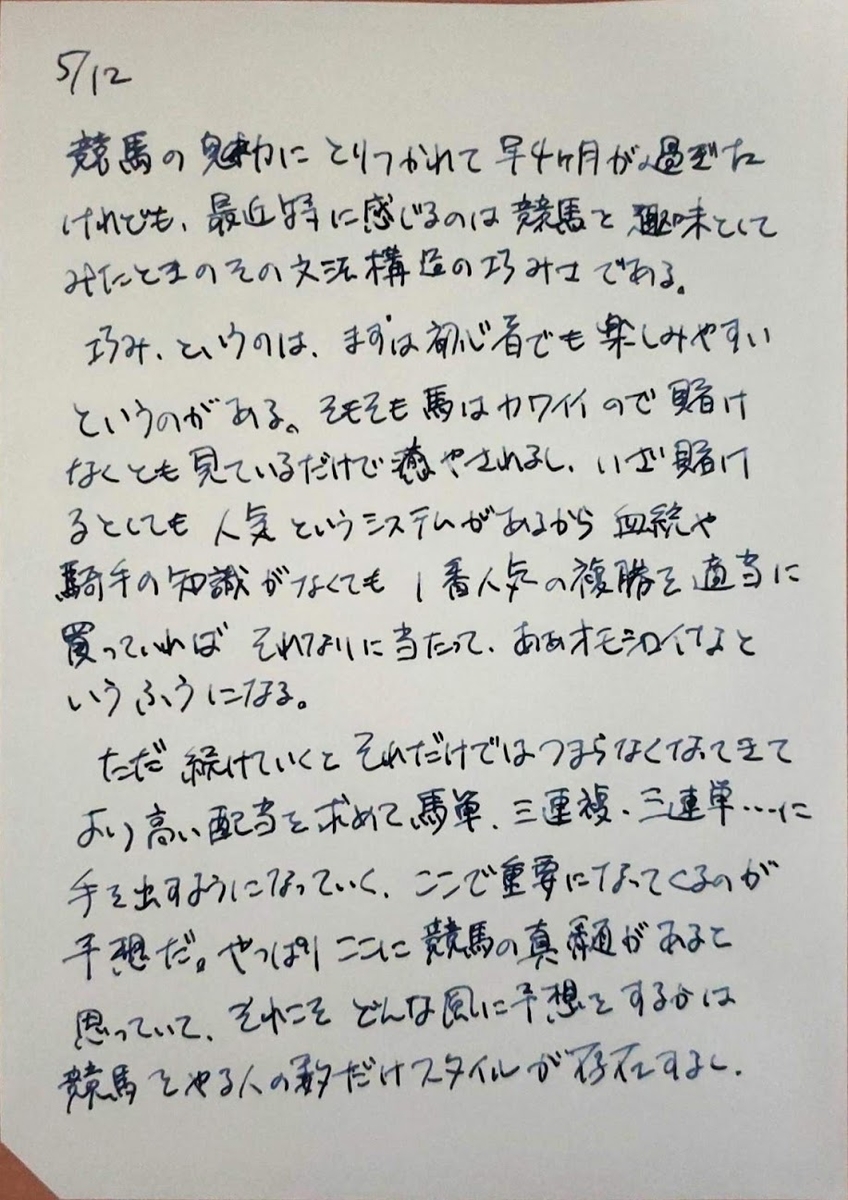 5/12
競馬の魅力にとりつかれて早4ヶ月が過ぎた
けれども、最近特に感じるのは競馬を趣味として
みたときのその文法構造の巧みさである。
巧み、というのは、まずは初心者でも楽しみやすい
というのがある。そもそも馬はカワイイので賭け
なくとも見ているだけで癒やされるし、いざ賭け
るとしても人気というシステムがあるから血統や
騎手の知識がなくても1番人気の複勝を適当に
買っていればそれなりに当たって、ああオモシロイなと
いうふうになる。
ただ続けていくとそれだけではつまらなくなってきて
より高い配当を求めて馬単、三連複・三連単……に
手を出すようになっていく、ここで重要になってくるのが
予想だ。やっぱりここに競馬の真髄があると
思っていて、それこそどんな風に予想をするかは
競馬をやる人の数だけスタイルが存在するし、